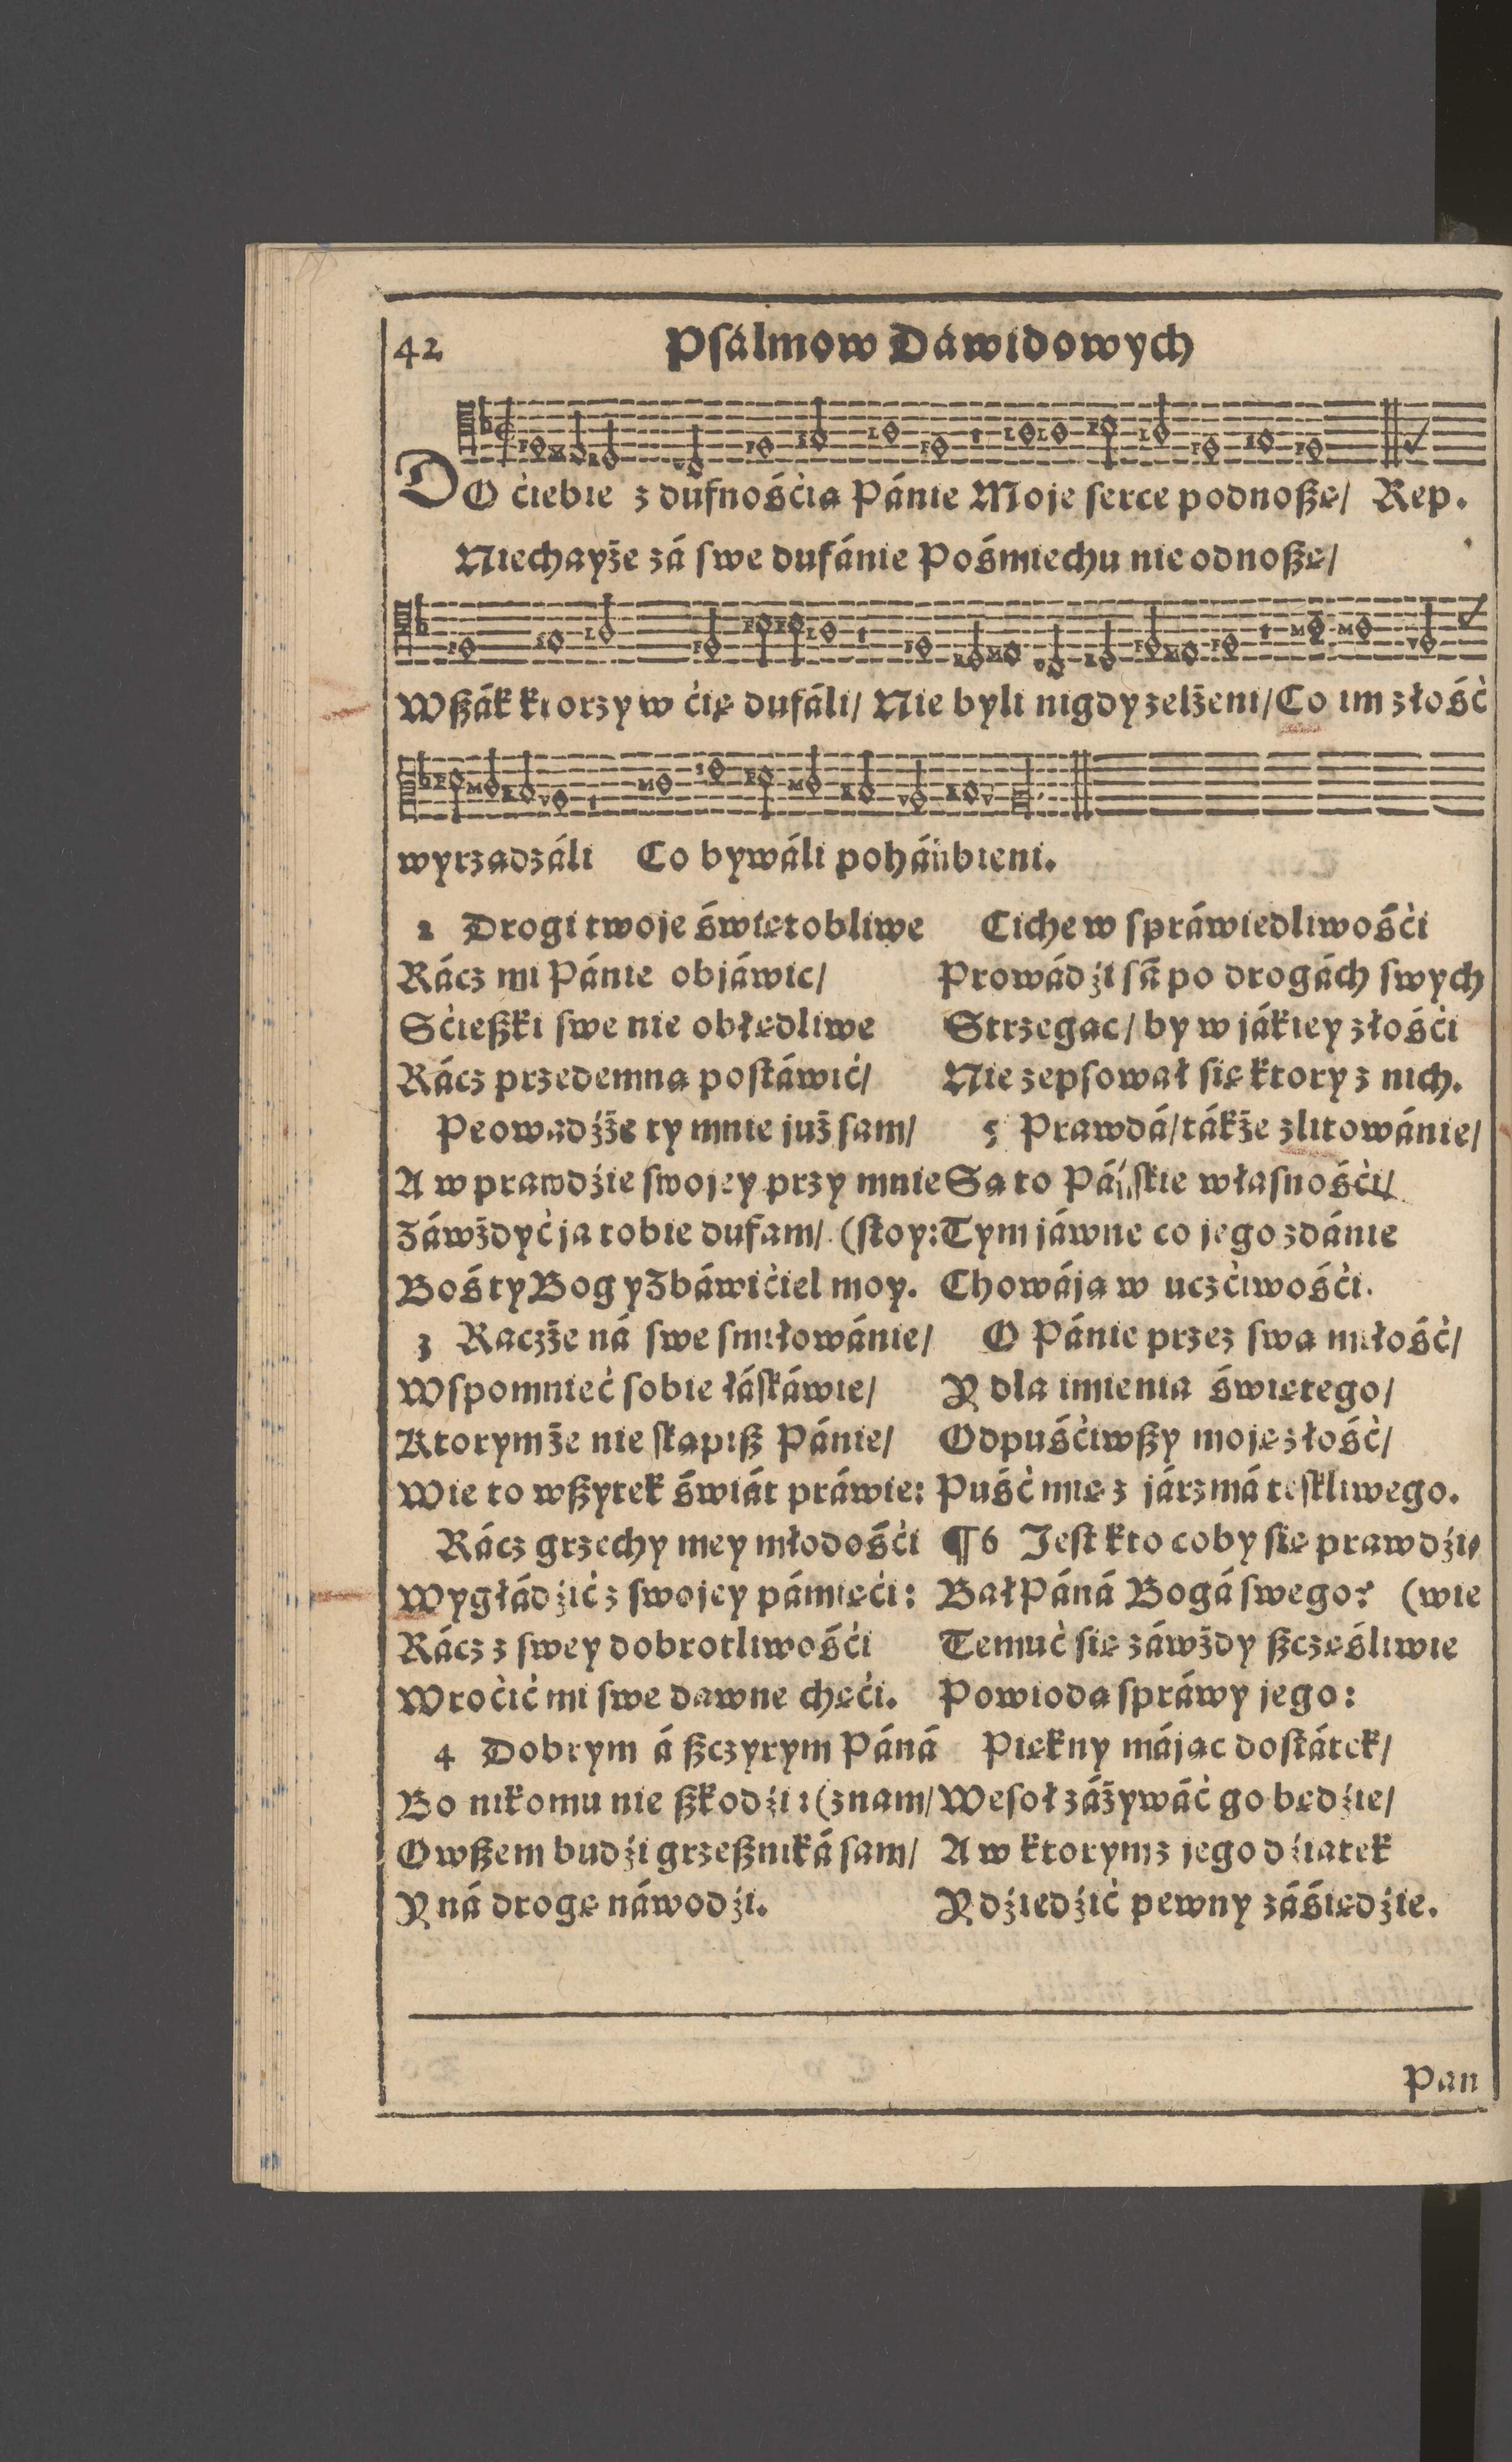 42 Psálmow Dáwidowych
DO ćiebie z dufnośćią Pánie Moje ſerce podnoßę/ Rep.
Niechayże zá ſwe dufánie Pośmiechu nie odnoßę/
Wßák ktorzy w ćię dufáli/ Nie byli nigdy zelżeni/ Co im złość
wyrządzáli Co bywáli poháńbieni.
2 Drogi twoje świętobliwe
Rácz mi Pánie objáwic/
Sćießki ſwe nie obłędliwe
Rácz przedemną poſtáwić/
Peowadźże ty mnie już ſam/
A w prawdźie ſwojey przy mnie
Záwżdyć ja tobie dufam/ (ſtoy:
Boś ty Bog y Zbáwićiel moy.
3 Raczże ná ſwe ſmiłowánie/
Wſpomnieć ſobie łáſkáwie/
Ktorymże nie ſkąpiß Pánie/
Wie to wßytek świát práwie:
Rácz grzechy mey młodośći
Wygłádźić z ſwojey pámięći:
Rácz z ſwey dobrotliwośći
Wroćić mi ſwe dawne chęći.
4 Dobrym á ßczyrym Páná
Bo nikomu nie ßkodźi: (znam/
Owßem budźi grzeßniká ſam/
Y ná drogę náwodźi.
Ciche w ſpráwiedliwośći
Prowádźi ſą̃ po drogách ſwych
Strzegąc/ by w jákiey złośći
Nie zepſował ſię ktory z nich.
5 Prawdá/ tákże zlitowánie/
Są to Páńſkie właſnośći/
Tym jáwne co jego zdánie
Chowáją w uczćiwośći.
O Pánie przez ſwą miłość/
Y dla imienia świętego/
Odpuśćiwßy moję złość/
Puść mię z járzmá teſkliwego.
¶ 6 Jeſt kto coby ſię prawdźi⸗
Bał Páná Bogá ſwego? (wie
Temuć ſię záwżdy ßczęśliwie
Powiodą ſpráwy jego:
Piękny májąc doſtátek/
Weſoł záżywáć go będźie/
A w ktorym z jego dźiatek
Y dźiedźić pewny záśiędźie.
Pan